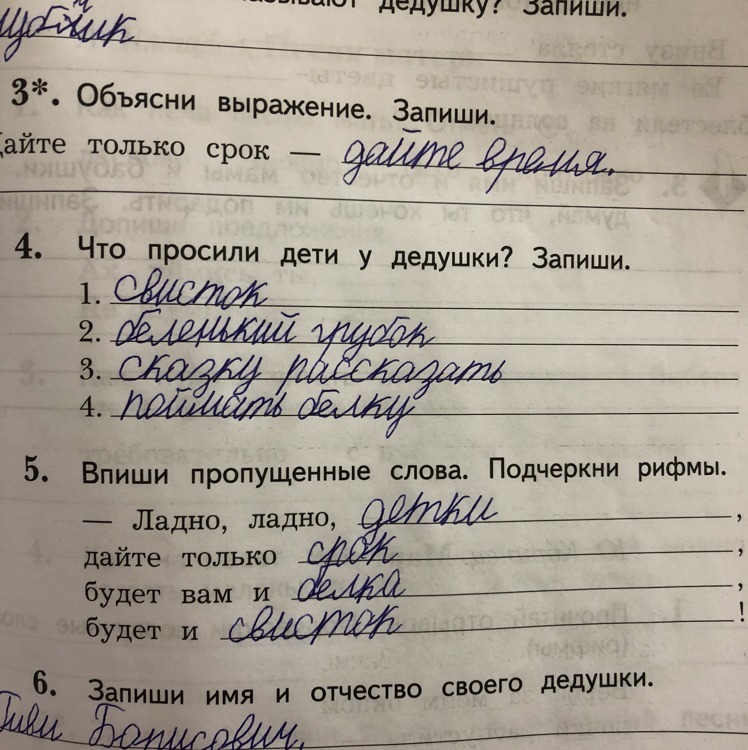 дедушку? Запиши.
3*. Объясни выражение. Запиши.
Дайте только срок — дайте время.
4. Что просили дети у дедушки? Запиши.
1. свисток
2. беленький грубок
3. сказку рассказать
4. поймать белку
5. Впиши пропущенные слова. Подчеркни рифмы.
— Ладно, ладно, детки,
дайте только срок,
будет вам и белка,
будет и свисток!
6. Запиши имя и отчество своего дедушки.
Борисович.